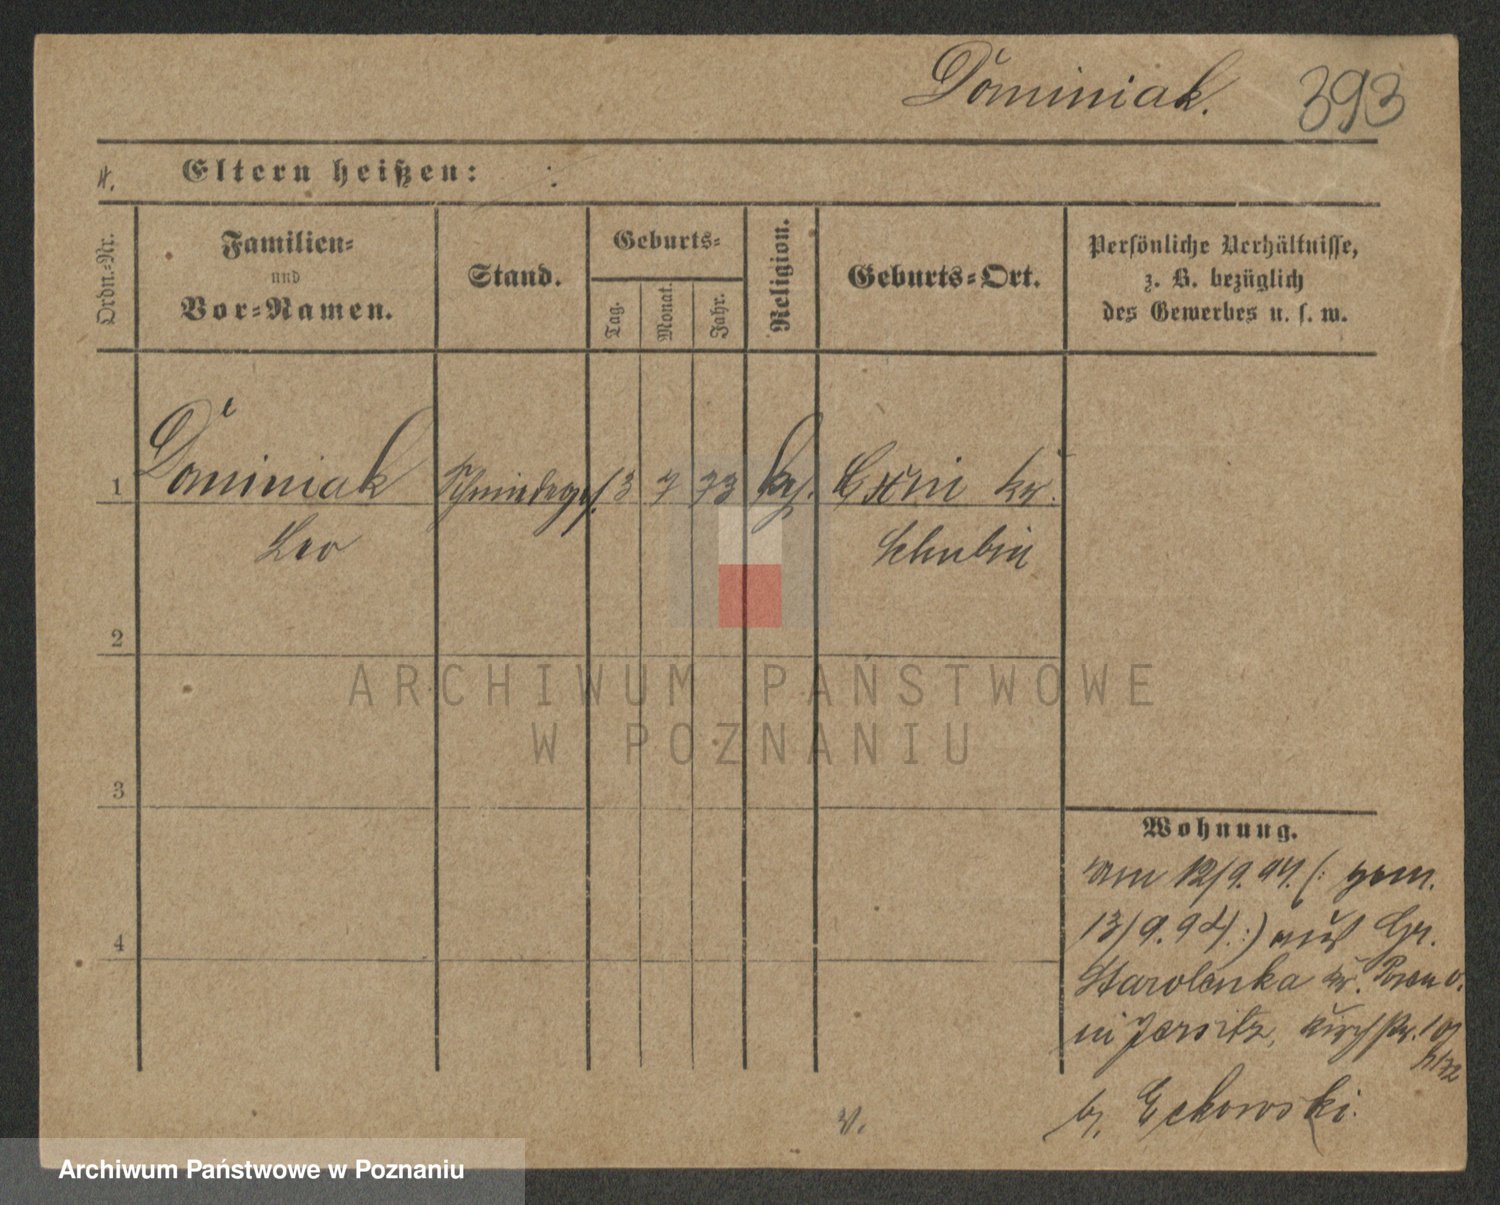 Dominiak. 393
Eltern heißen:
Ordn.-Nr.
Familien-
und
Vor-Namen.
Stand.
Geburts-
Tag.
Monat.
Jahr.
Religion.
Geburts-Ort.
Persönliche Verhältnisse,
z. B. bezüglich
des Gewerbes u. s. w.
1 Dominiak Schmiedeges. 13 7 73 kath. Exin Kr.
Leo Schubin
2
3
4
Wohnung.
am 12/9.94. (: gem.
13/9.94.:) aus Gr.
Starolenka Kr. Posen O.
in Jersitz, Kirchstr.
b. Eckowski.
ARCHIWUM PAŃSTWOWE
W POZNANIU
Archiwum Państwowe w Poznaniu